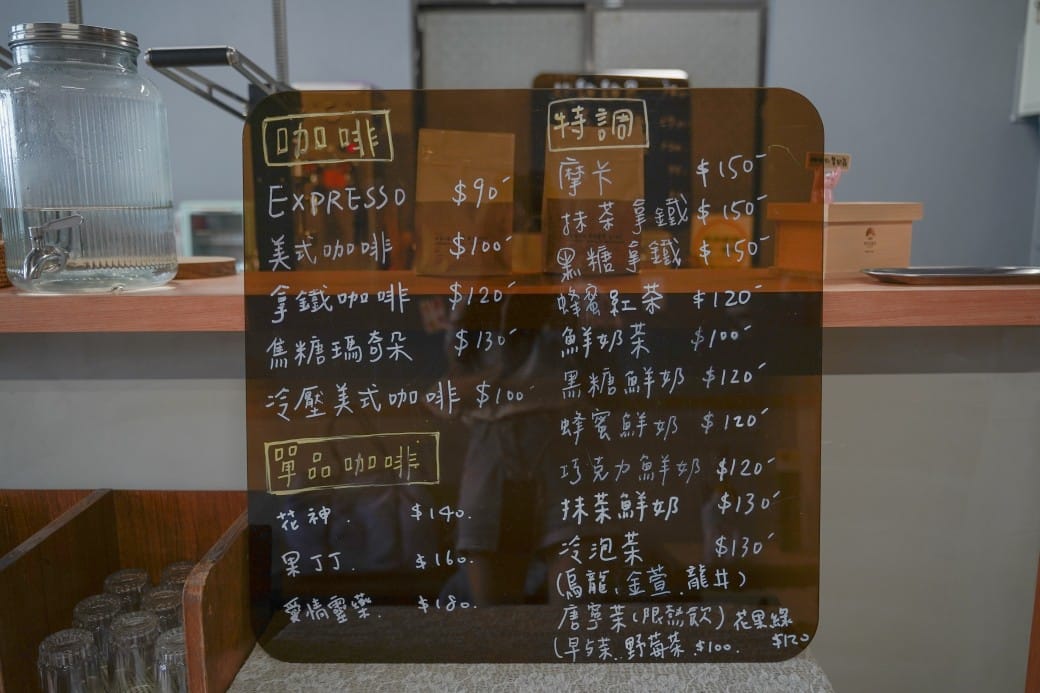 咖啡
EXPRESSO $90
美式咖啡 $100
拿鐵咖啡 $120
焦糖瑪奇朵 $130
冷壓美式咖啡 $100
單品咖啡
花神. $140.
果丁丁. $160.
愛情靈藥. $180.
特調
摩卡 $150
抹茶拿鐵 $150
黑糖拿鐵 $150
蜂蜜紅茶 $120
鮮奶茶 $100
黑糖鮮奶 $120
蜂蜜鮮奶 $120
巧克力鮮奶 $120
抹茶鮮奶 $130
冷泡茶 $130
(烏龍, 金萱. 龍井)
唐寧茶(限熱飲) 花果綠 $120
(早午茶. 野莓茶. $100.